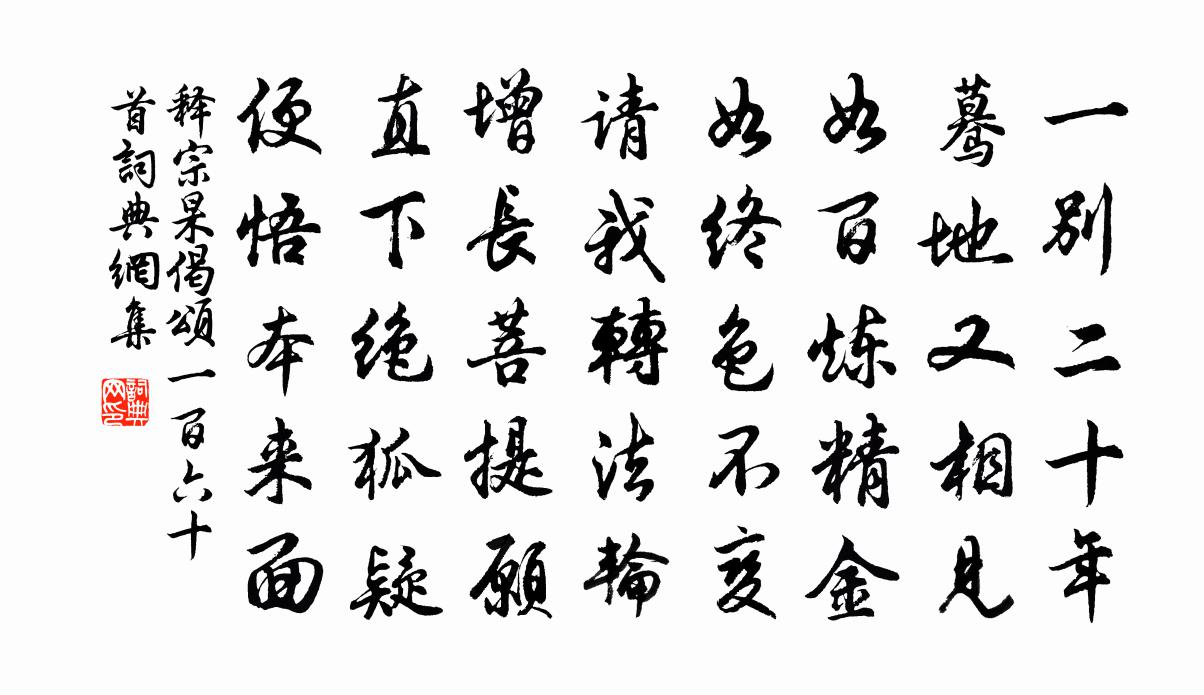 一别二十年
蓦地又相见
如百炼精金
如终色不变
请我轉法輪
增長菩提願
直下绝狐疑
便悟本来面
释宗杲偈頌一百六十
首詞典網集
詞典网印